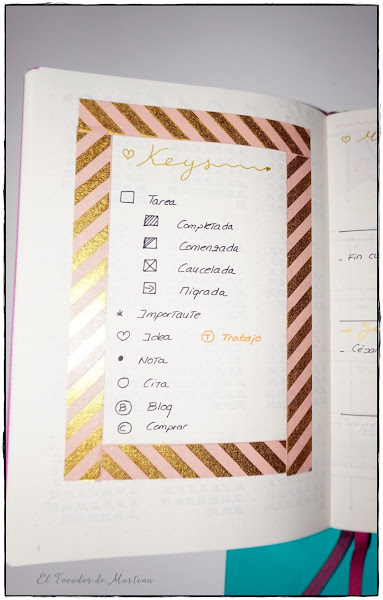 Keys
Tarea
Completada
Comenzada
Cancelada
Migrada
* Importante
Idea
T Trabajo
Nota
Cita
B Blog
C Comprar
- Fin
- Césa
2
El Tocador de Martina